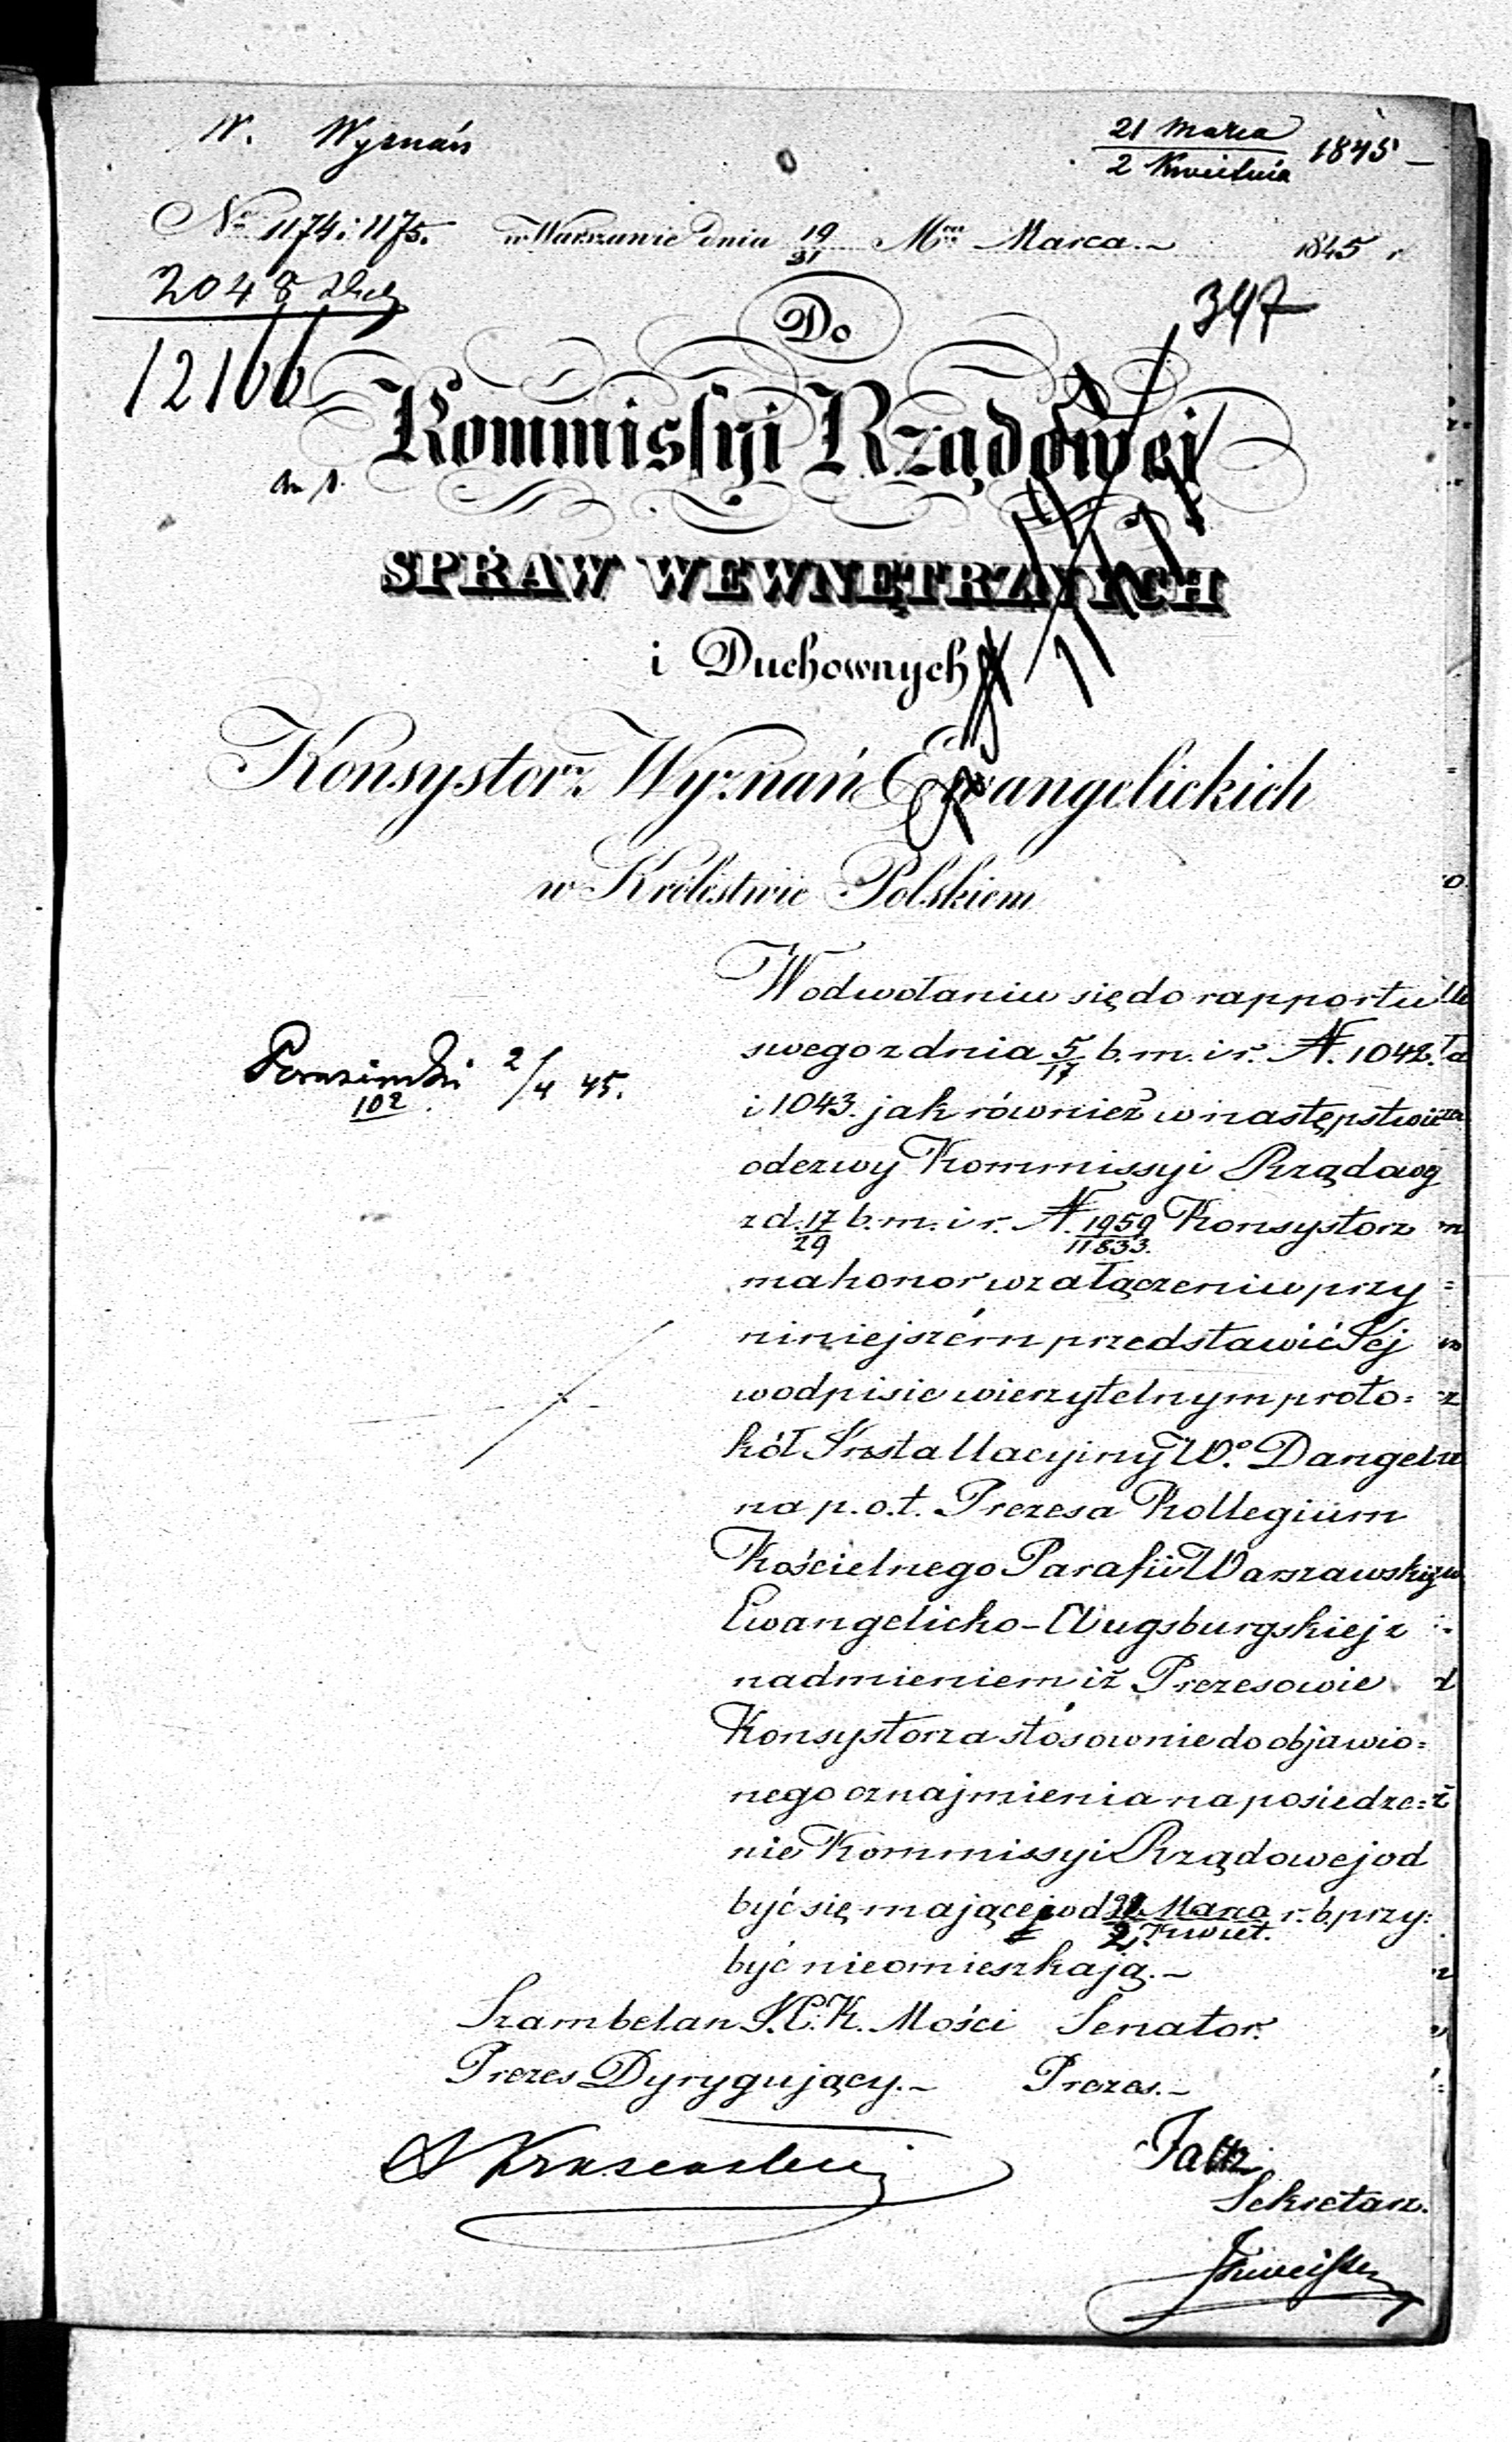 W. Wyznań
21 Marca
2 Kwietnia 1845 –
No 1174 i 1175. w Warszawie dnia 19/31 Mca Marca. – 1845 r
2048
12166
347
Do
Kommissyi Rządowej
SPRAW WEWNĘTRZNYCH
i Duchownych
Konsystorz Wyznań Ewangelickich
w Królestwie Polskiem
W odwołaniu się do rapportu
swego z dnia 5/17 b.m. i r. N. 1042.
i 1043. jak również w następstwie
odezwy Kommissyi Rządowej
z d. 17/29 b.m. i r. N. 1959/11833. Konsystorz
ma honor w załączeniu przy
niniejszém przedstawić Jéj
w odpisie wierzytelnym proto=
kół Installacyjny W.o Dangela
na p.o.t. Prezesa Kollegium
Kościelnego Parafii Warszawskiej
Ewangelicko-Augsburgskiej z
nadmieniem iż Prezesowie
Konsystorza stósownie do objawio=
nego oznajmienia na posiedze=
nie Kommissyi Rządowej od
być się mającej w d. Marca/2 Kwiet. r. b. przy=
być nieomieszkają. –
2/4 45.
102
Szambelan J.C.K. Mości Senator.
Prezes Dyrygujący. – Prezes. –
Sekretarz.